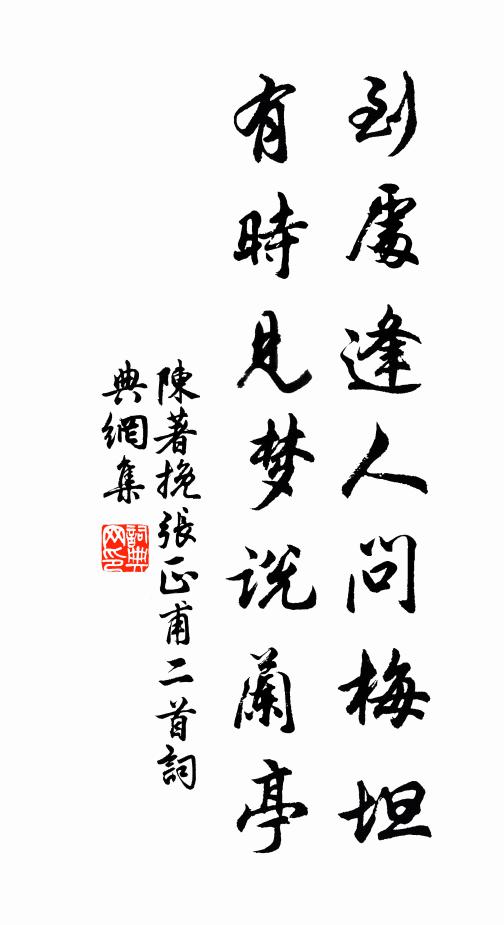 到處逢人問梅坦
有時見梦說蘭亭
陳著挽張正甫二首詞
典網集
詞典網印